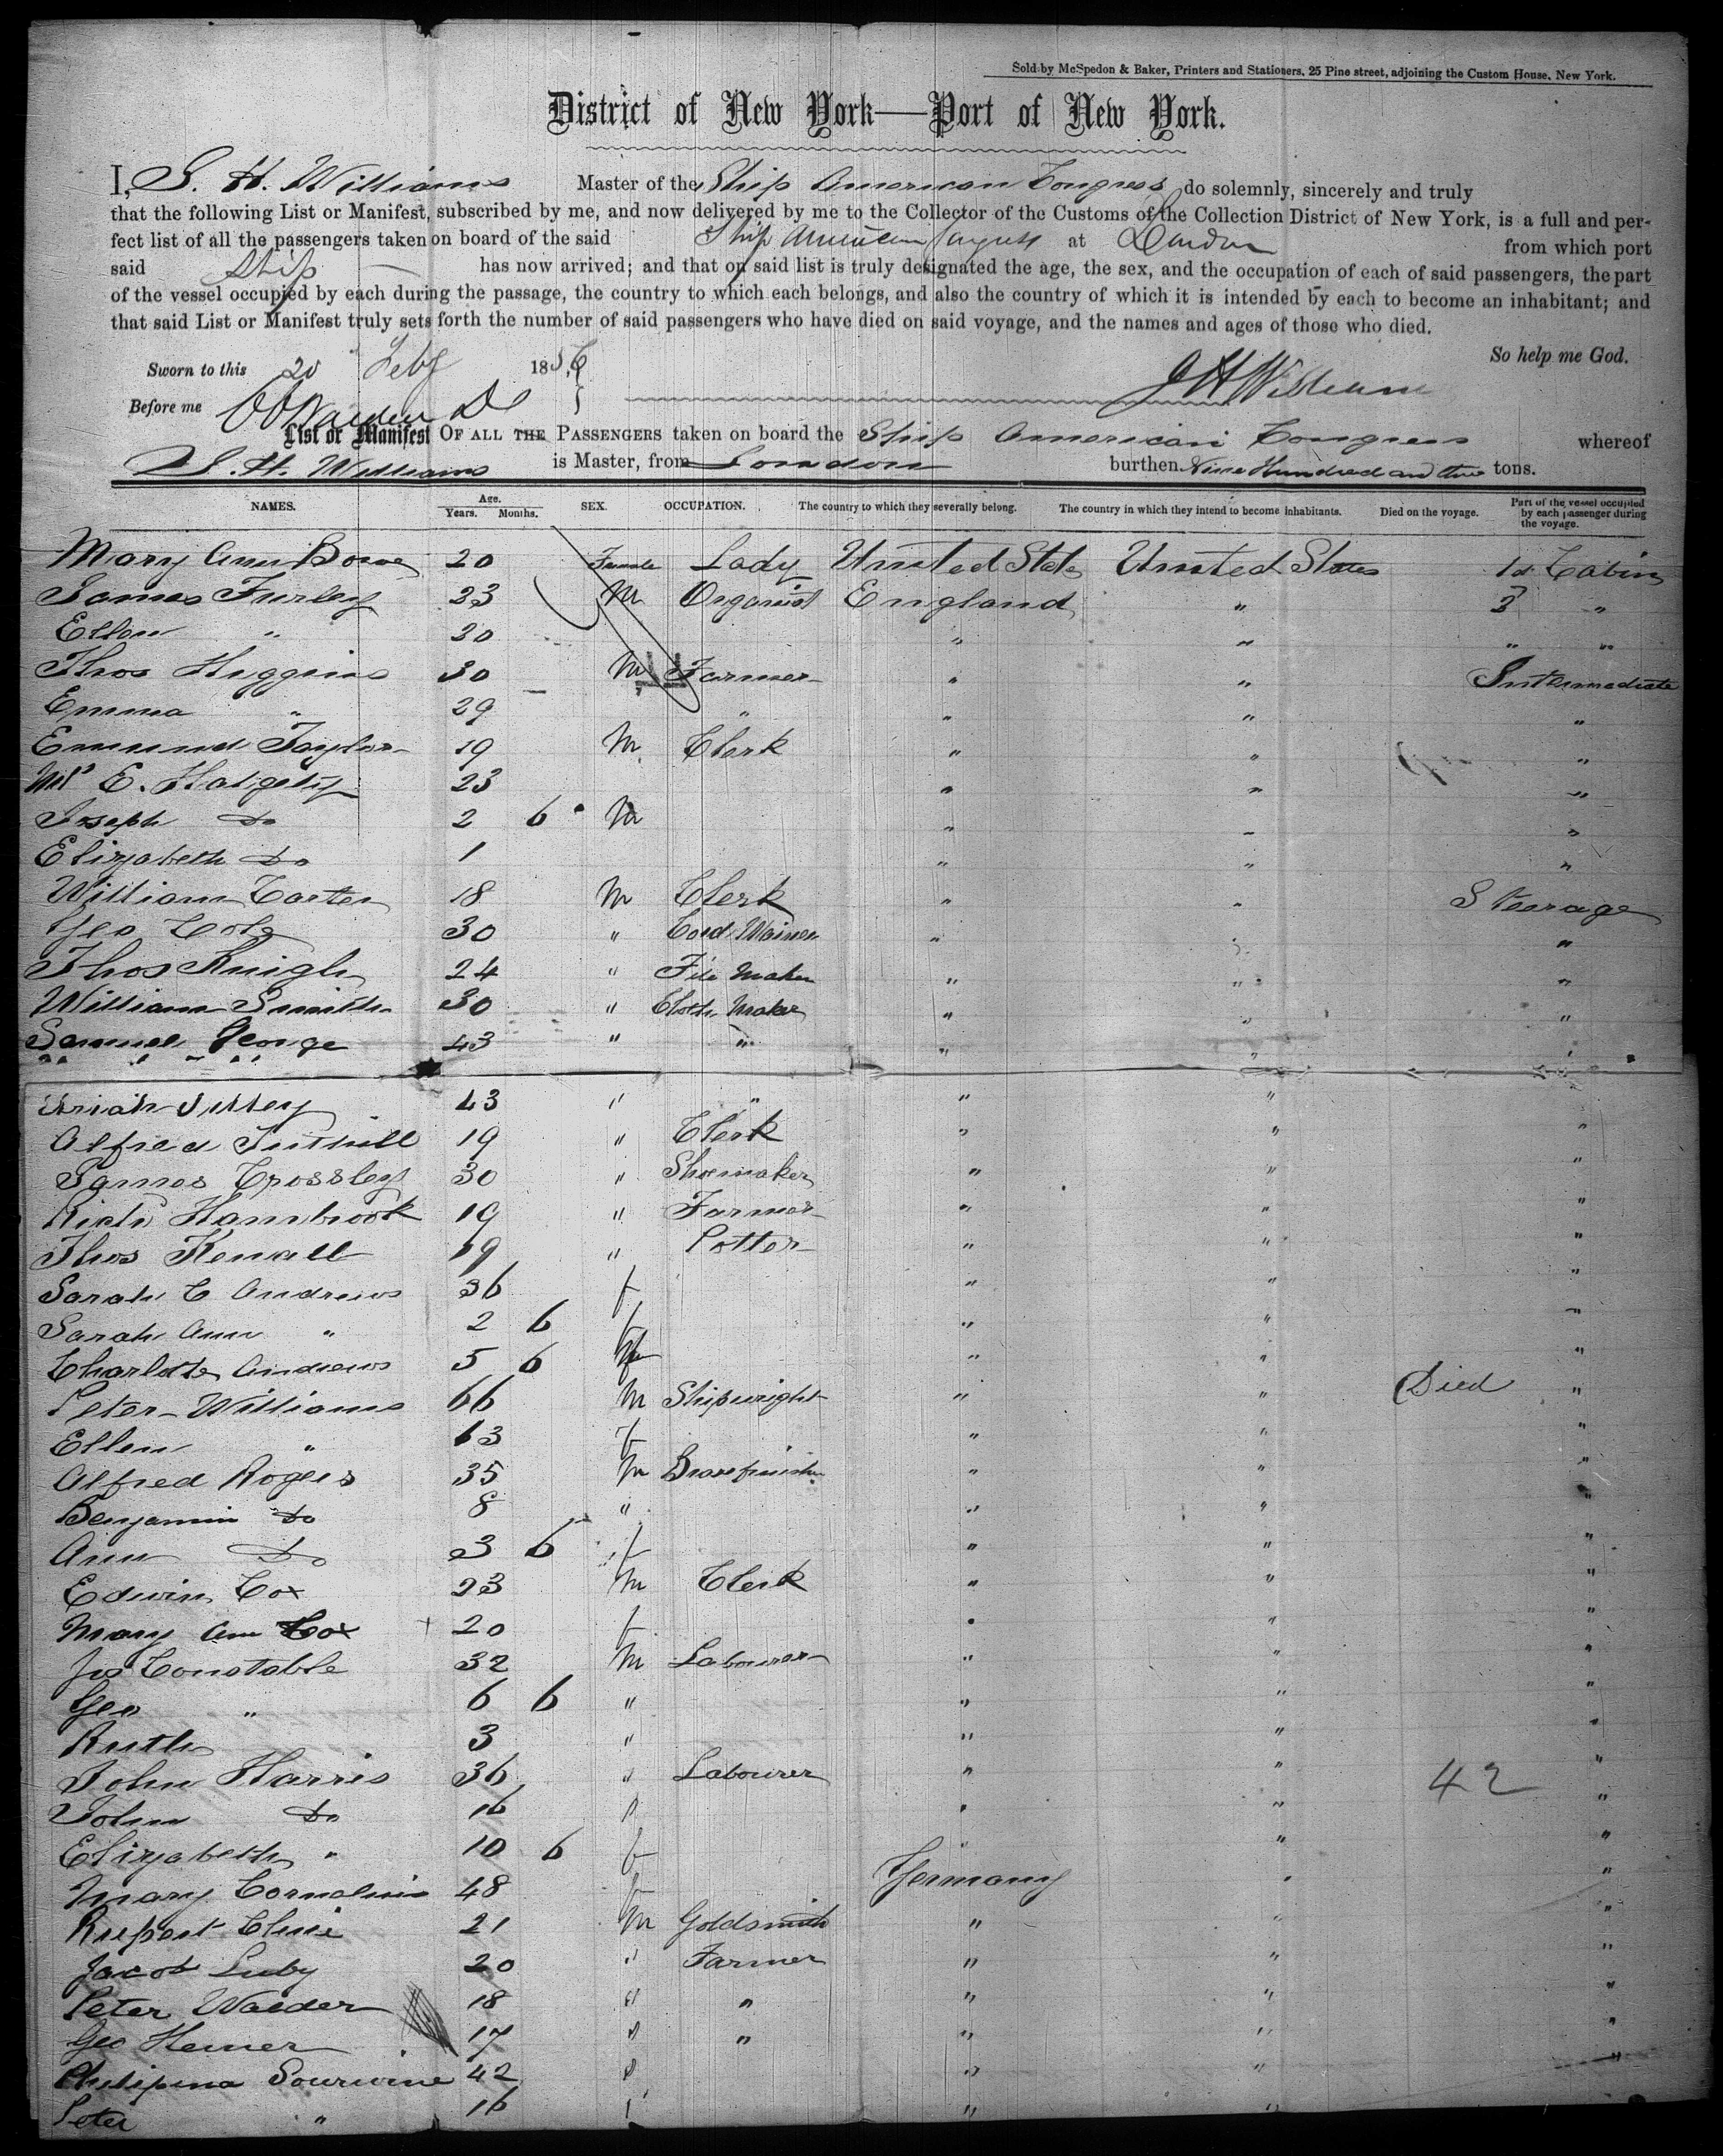 Sold by McSpedon & Baker, Printers and Stationers, 25 Pine street, adjoining the Custom House, New York.
District of New York—Port of New York.
I, S. H. Williams Master of the Ship American Congress do solemnly, sincerely and truly
that the following List or Manifest, subscribed by me, and now delivered by me to the Collector of the Customs of the Collection District of New York, is a full and per-
fect list of all the passengers taken on board of the said Ship American Congress at London from which port
said Ship has now arrived; and that on said list is truly designated the age, the sex, and the occupation of each of said passengers, the part
of the vessel occupied by each during the passage, the country to which each belongs, and also the country of which it is intended by each to become an inhabitant; and
that said List or Manifest truly sets forth the number of said passengers who have died on said voyage, and the names and ages of those who died.
So help me God.
Sworn to this 20 Feby 1856
Before me
List or Manifest OF ALL THE PASSENGERS taken on board the Ship American Congress whereof
S. H. Williams is Master, from London burthen Nine Hundred and tons.
NAMES. Age. Years. Months. SEX. OCCUPATION. The country to which they severally belong. The country in which they intend to become inhabitants. Died on the voyage. Part of the vessel occupied by each passenger during the voyage.
Mary Ann Bowe 20 Female Lady United States United States 1st Cabin
James Furley 23 M Organist England " 2 "
Ellen " 20 " " " "
Thos Higgins 30 M Farmer " " Intermediate
Emma " 29 " " " "
Emund Taylor 19 M Clerk " " "
Mrs E. 23 " " "
Joseph Do 2 6 M " " "
Elizabeth Do 1 " " "
William Carter 18 M Clerk " " Steerage
Geo Cole 30 " Cord Wainer " " "
Thos Knight 24 " File Maker " " "
William Smith 30 " Cloth Maker " " "
Samuel George 43 " " " " "
Uriah 43 " " " "
Alfred Tuthill 19 " Clerk " " "
James Crossley 30 " Shoemaker " " "
Richd Hambrook 19 " Farmer " " "
Thos Kewall 19 " Potter " " "
Sarah C Andrews 36 f " " "
Sarah Ann " 2 6 f " " "
Charlotte Andrews 5 6 f " " "
Peter Williams 66 M Shipwright " " Died "
Ellen " 13 f " " "
Alfred Rogers 35 M Brassfinisher " " "
Benjamin Do 8 " " " "
Ann Do 3 6 f " " "
Edwin Cox 23 M Clerk " " "
Mary Ann Cox 20 f " " "
Jas Constable 32 M Labourer " " "
Geo " 6 6 " " " "
Ruth 3 " " " "
John Harris 36 " Labourer " " 42 "
John Do 16 " " " "
Elizabeth " 10 6 f " " "
Mary Cornelius 48 f Germany " "
Rupert 21 M Goldsmith " " "
Jacob Luby 20 " Farmer " " "
Peter Walder 18 " " " " "
Geo Hemer 17 " " " " "
Philipina Sourwine 42 " " " "
Peter " 16 " " "